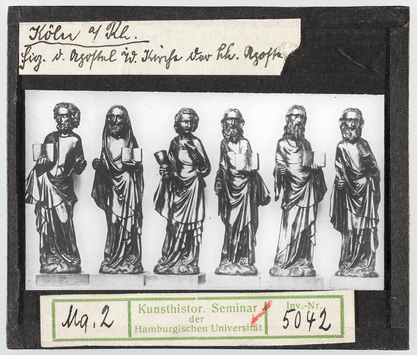 Köln a/Rh.
Fig. d. Apostel i/d. Kirche der hl. Aposte
Mg. 2
Kunsthistor. Seminar
der
Hamburgischen Universität
Inv.-Nr.
5042